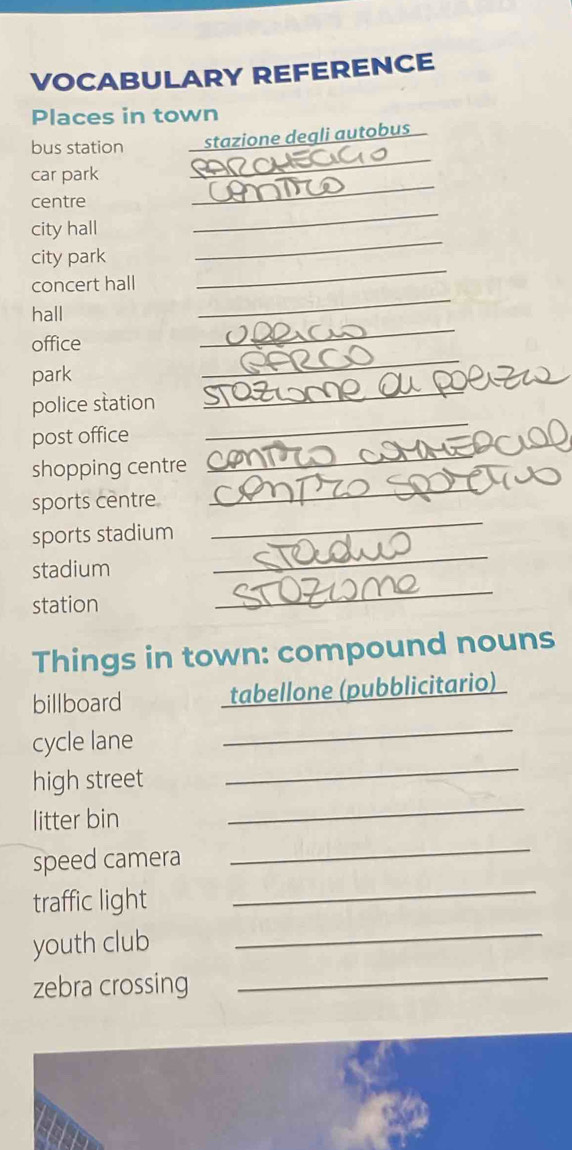 VOCABULARY REFERENCE
Places in town
bus station stazione degli autobus
car park PARCHEGGIO
centre CENTRO
city hall
city park
concert hall
hall
office UFFICIO
park PARCO
police station STAZIONE DI POLIZIA
post office
shopping centre CENTRO COMMERCIAL
sports centre CENTRO SPORTIVO
sports stadium
stadium STADIO
station STAZIONE
Things in town: compound nouns
billboard tabellone (pubblicitario)
cycle lane
high street
litter bin
speed camera
traffic light
youth club
zebra crossing